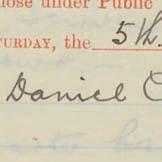 lose under Public
TURDAY, the 5th
Daniel C